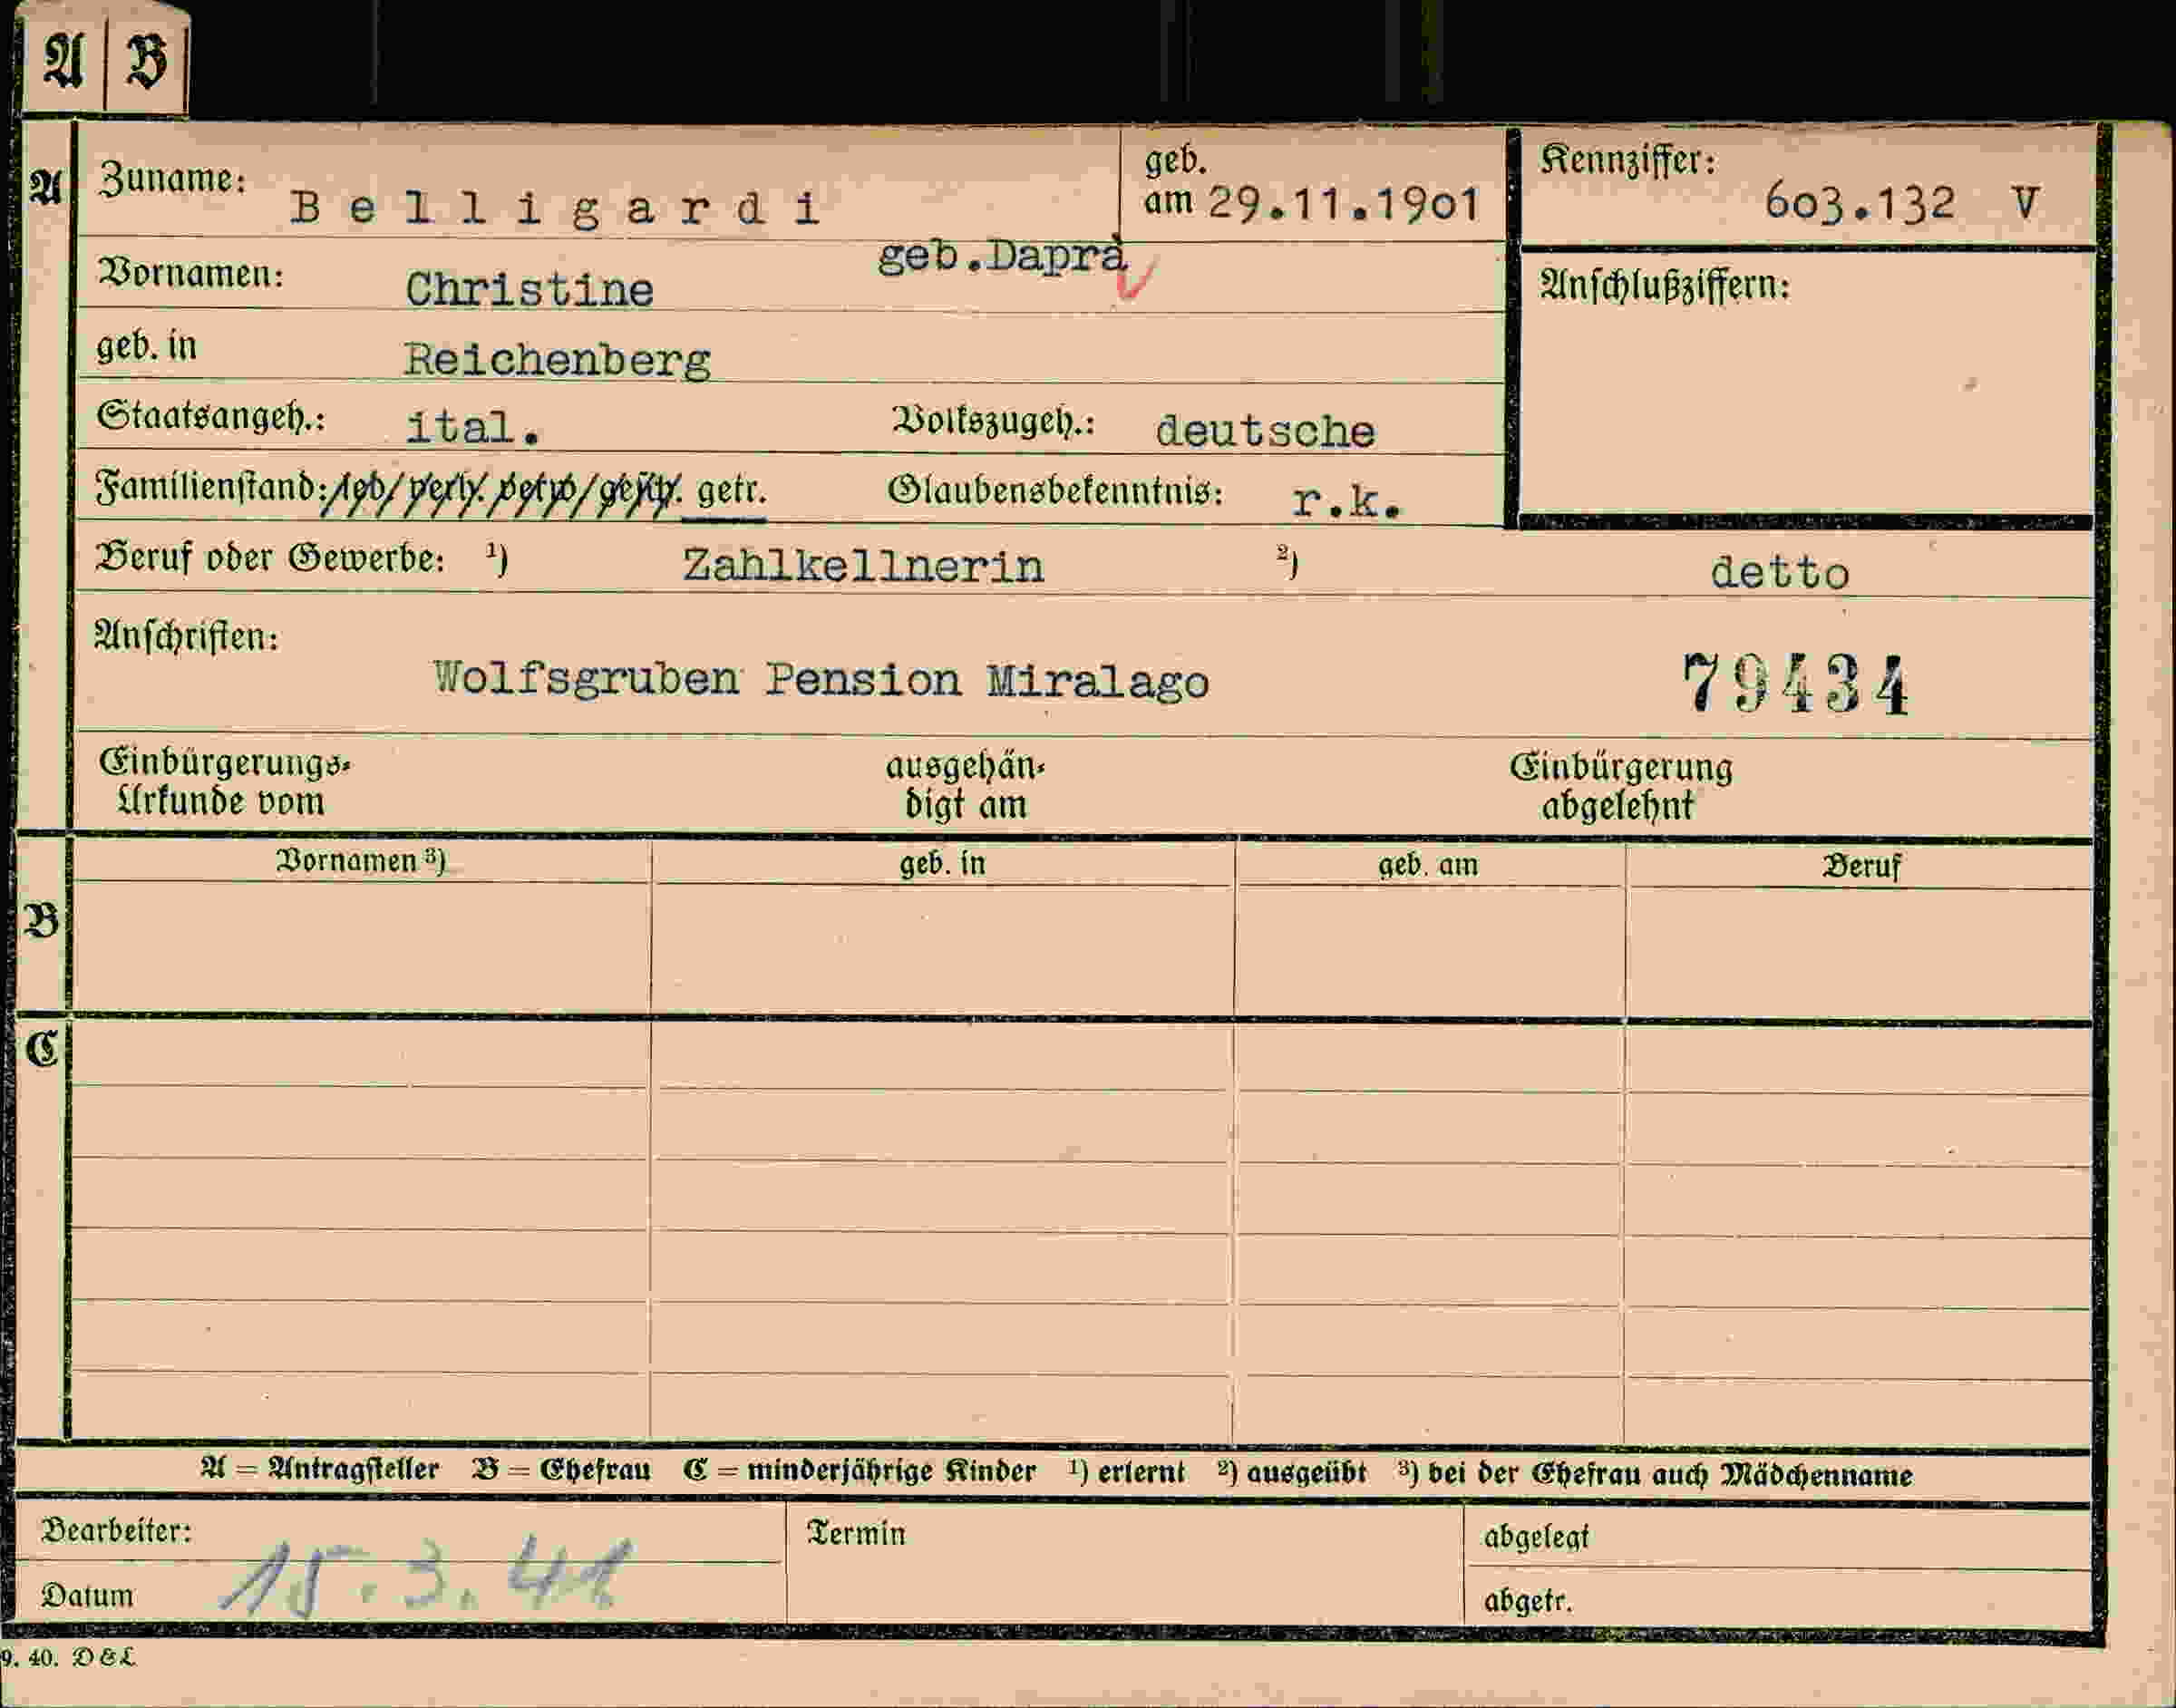 A B
A Zuname: Belligardi geb. am 29.11.1901 Kennziffer: 603.132 V
geb.Daprà
Vornamen: Christine Anschlußziffern:
geb. in Reichenberg
Staatsangeh.: ital. Volkszugeh.: deutsche
Familienstand: led. verh. verw. gesch. getr. Glaubensbekenntnis: r.k.
Beruf oder Gewerbe: 1) Zahlkellnerin 2) detto
Anschriften:
Wolfsgruben Pension Miralago 79434
Einbürgerungs- ausgehän- Einbürgerung
Urkunde vom digt am abgelehnt
Vornamen 3) geb. in geb. am Beruf
B
C
A = Antragsteller B = Ehefrau C = minderjährige Kinder 1) erlernt 2) ausgeübt 3) bei der Ehefrau auch Mädchenname
Bearbeiter: Termin abgelegt
Datum 15.3.41 abgetr.
9. 40. D & L